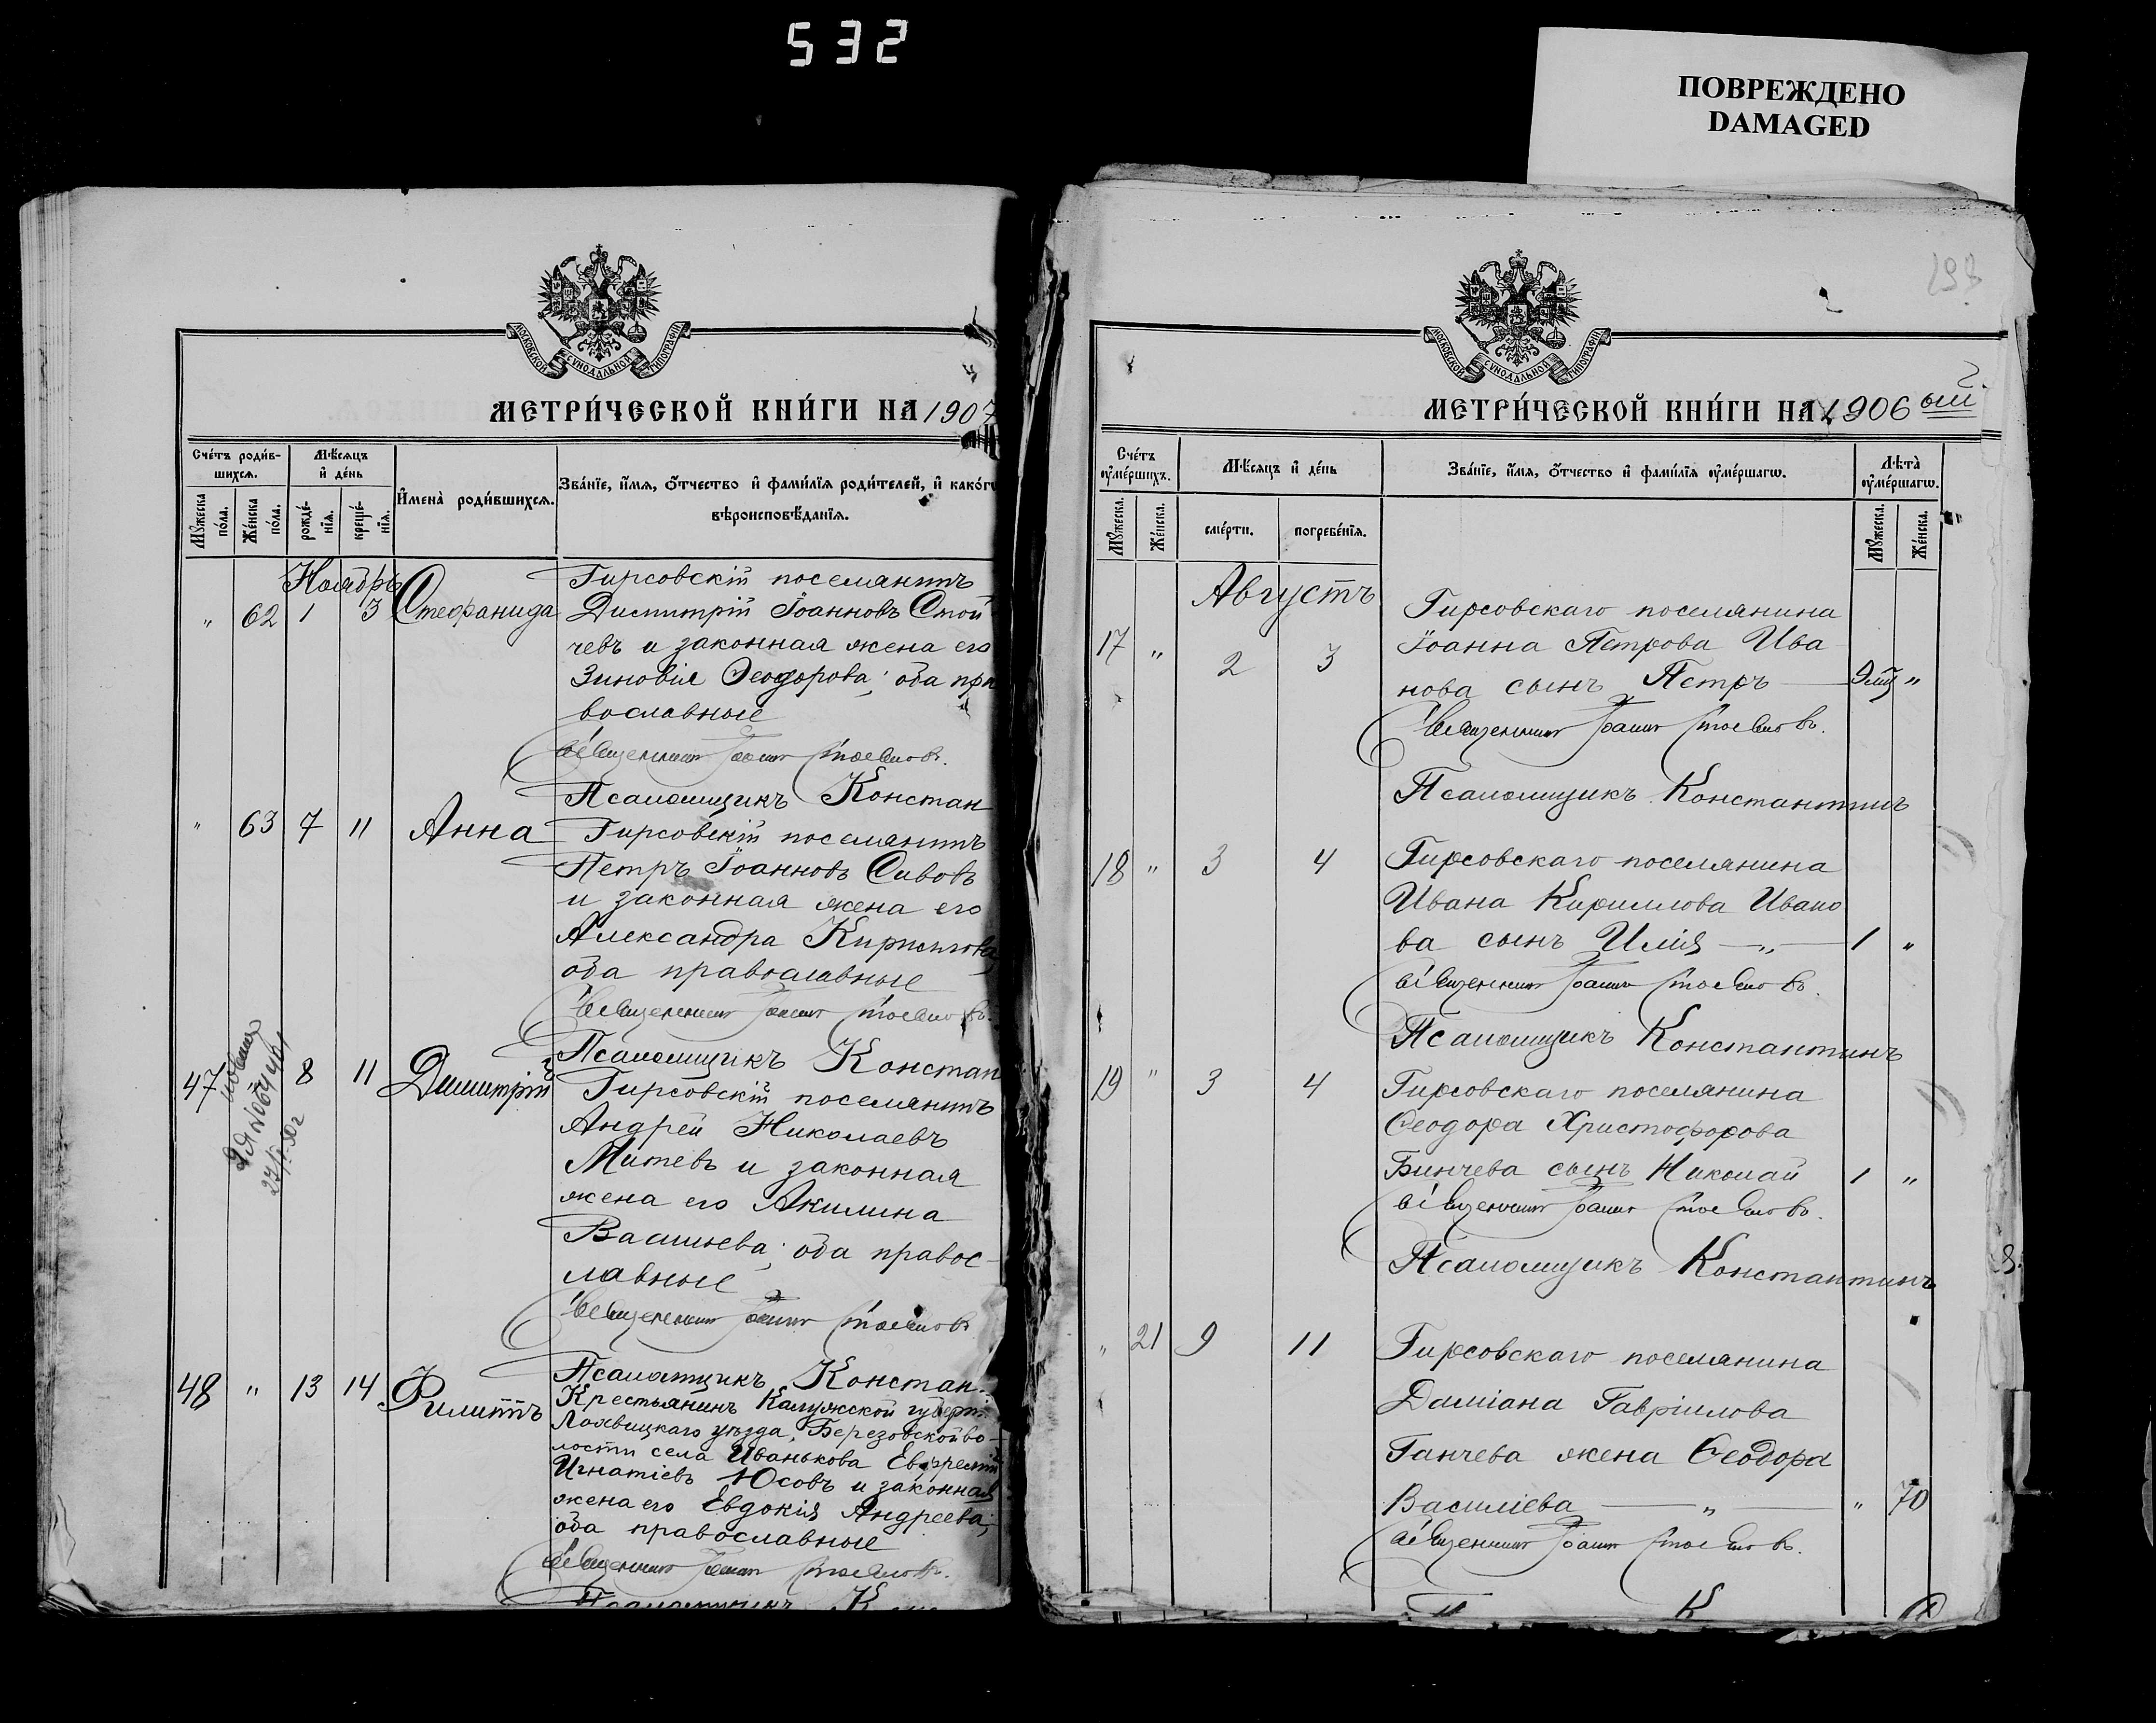 532
ПОВРЕЖДЕНО
DAMAGED
МОСКОВСКОЙ СУНОДАЛЬНОЙ ТИПОГРАФІИ
МЕТРИ́ЧЕСКОЙ КНИ́ГИ НА 1907
Сче́тъ роди́в-
шихся.
Мѣ́сяцъ
и҆ де́нь
Мꙋ́жеска
по́ла.
Же́нска
по́ла.
рожде́-
нїя.
креще́-
нїя.
И҆мена̀ роди́вшихся.
Зва́нїе, и҆́мя, ѻ҆́тчество и҆ фами́лїя роди́телей, и҆ како́гѡ
вѣроисповѣ́данїя.
Ноябрь
" 62 1 3 Стефанида
Гирсовскій поселянинъ
Димитрій Іоанновъ Стой
чевъ и законная жена его
Зиновія Ѳеодорова; оба пра
вославные
Священникъ Іоаннъ Стоеновъ.
Псаломщикъ Констан
" 63 7 11 Анна
Гирсовскій поселянинъ
Петръ Іоанновъ Сивовъ
и законная жена его
Александра Кириллова,
оба православные
Священникъ Іоаннъ Стоеновъ.
Псаломщикъ Констан
47 8 11 Димитрій
Гирсовскій поселянинъ
Андрей Николаевъ
Митевъ и законная
жена его Акилина
Васильева; оба правос-
лавные
Священникъ Іоаннъ Стоеновъ
Псаломщикъ Констан.
48 " 13 14 Филиппъ
Крестьянинъ Калужской губерн.
Лохвицкаго уѣзда, Березовской во-
лости села Иванькова
Игнатіевъ Юсовъ и законная
жена его Евдокія Андреева;
оба православные
Священникъ Іоаннъ Стоеновъ.
Псаломщикъ
198
МОСКОВСКОЙ СУНОДАЛЬНОЙ ТИПОГРАФІИ
МЕТРИ́ЧЕСКОЙ КНИ́ГИ НА 1906 ый
Сче́тъ
ᲂу҆ме́ршихъ.
Мѣ́сяцъ и҆ де́нь
Зва́нїе, и҆́мя, ѻ҆́тчество и҆ фами́лїя ᲂу҆ме́ршагѡ.
Лѣта̀
ᲂу҆ме́ршагѡ.
Мꙋ́жеска.
Же́нска.
сме́рти.
погребе́нїя.
Мꙋ́жеска.
Же́нска.
Августъ
17 " 2 3
Гирсовскаго поселянина
Іоанна Петрова Ива
нова сынъ Петръ — 9 мц "
Священникъ Іоаннъ Стоеновъ.
Псаломщикъ Константинъ
18 " 3 4 Гирсовскаго поселянина
Ивана Кириллова Ивано
ва сынъ Илія — " — 1 "
Священникъ Іоаннъ Стоеновъ.
Псаломщикъ Константинъ
19 " 3 4 Гирсовскаго поселянина
Ѳеодора Христофорова
Бинчева сынъ Николай 1 "
Священникъ Іоаннъ Стоеновъ.
Псаломщикъ Константинъ
" 21 9 11 Гирсовскаго поселянина
Даміана Гавріилова
Ганчева жена Ѳеодора
Василіева — " — " 70
Священникъ Іоаннъ Стоеновъ.